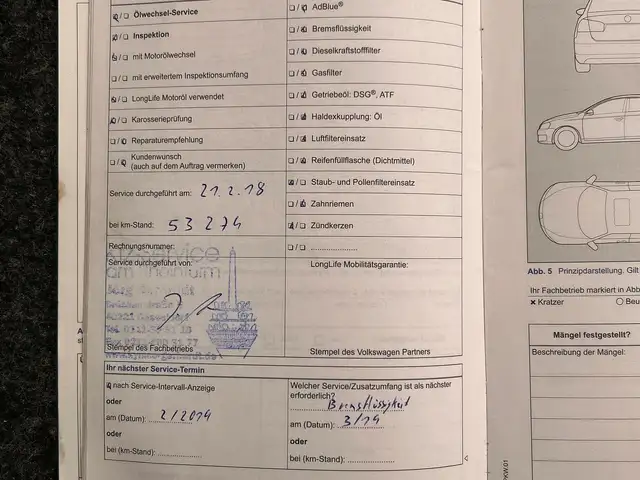 Ölwechsel-Service
Inspektion
mit Motorölwechsel
mit erweitertem Inspektionsumfang
LongLife Motoröl verwendet
Karosserieprüfung
Reparaturempfehlung
Kundenwunsch
(auch auf dem Auftrag vermerken)
Service durchgeführt am: 21.2.18
bei km-Stand: 53274
Rechnungsnummer:
Service durchgeführt von:
Stempel des Fachbetriebs
AdBlue®
Bremsflüssigkeit
Dieselkraftstofffilter
Gasfilter
Getriebeöl: DSG®, ATF
Haldexkupplung: Öl
Luftfiltereinsatz
Reifenfüllflasche (Dichtmittel)
Staub- und Pollenfiltereinsatz
Zahnriemen
Zündkerzen
LongLife Mobilitätsgarantie:
Stempel des Volkswagen Partners
Ihr nächster Service-Termin
nach Service-Intervall-Anzeige
oder
am (Datum): 2/2019
oder
bei (km-Stand):
Welcher Service/Zusatzumfang ist als nächster
erforderlich?
Bremsflüssigkeit
am (Datum): 3/19
oder
bei (km-Stand):
Abb. 5 Prinzipdarstellung. Gilt
Ihr Fachbetrieb markiert in Abb
Kratzer
Beu
Mängel festgestellt?
Beschreibung der Mängel: